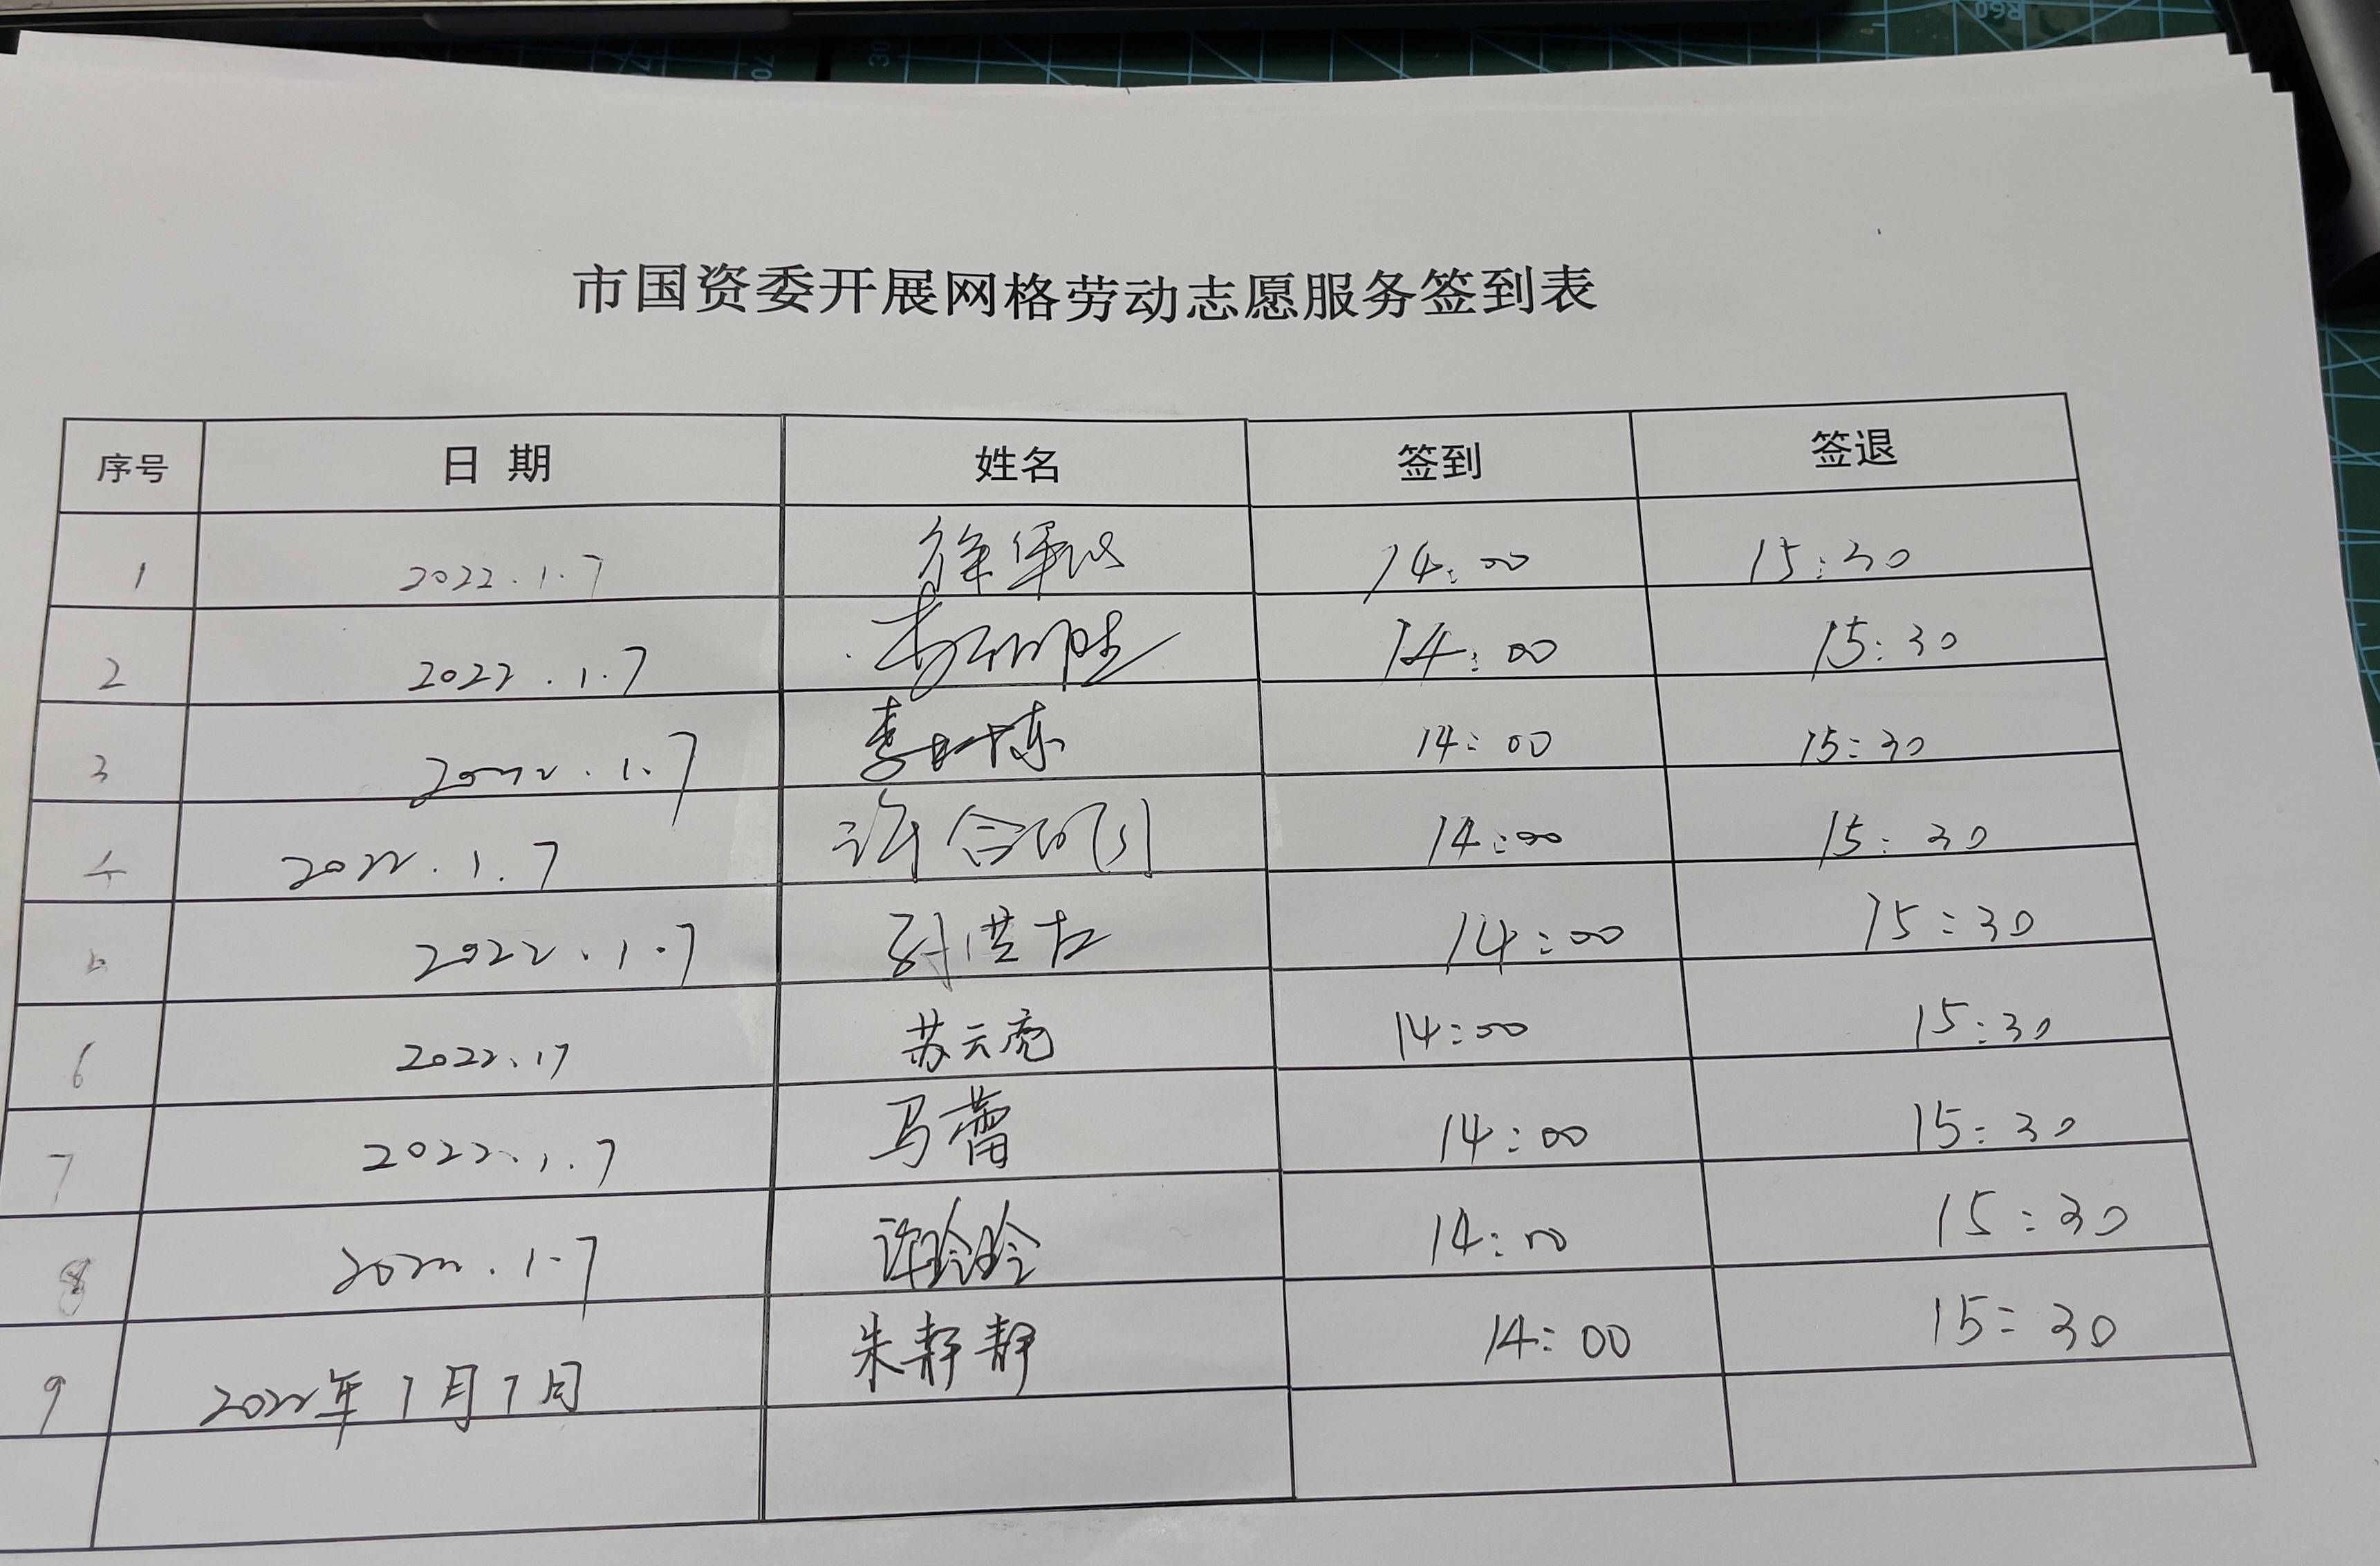 市国资委开展网格劳动志愿服务签到表
序号 日期 姓名 签到 签退
1 2022.1.7 徐军 14:00 15:30
2 2022.1.7 李 14:00 15:30
3 2022.1.7 李 栋 14:00 15:30
4 2022.1.7 许 14:00 15:30
5 2022.1.7 14:00 15:30
6 2022.17 苏云亮 14:00 15:30
7 2022.1.7 马蕾 14:00 15:30
8 2022.1.7 许玲玲 14:00 15:30
9 2022年1月7日 朱静静 14:00 15:30